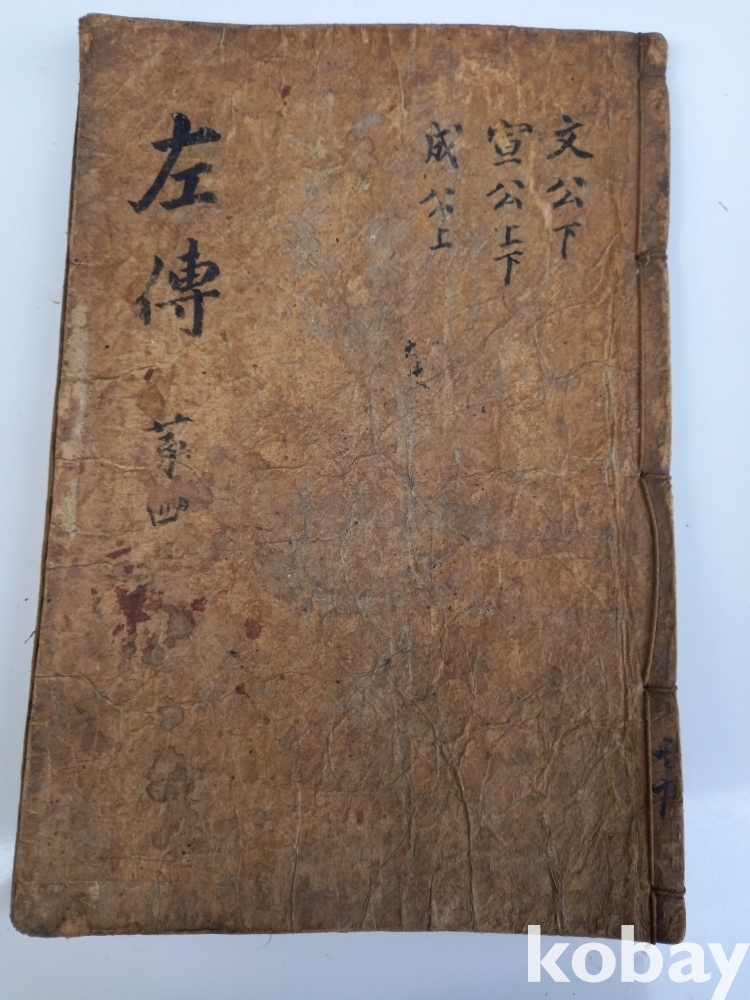 文公下
宣公上下
成公上
左傳 苐四
kobay